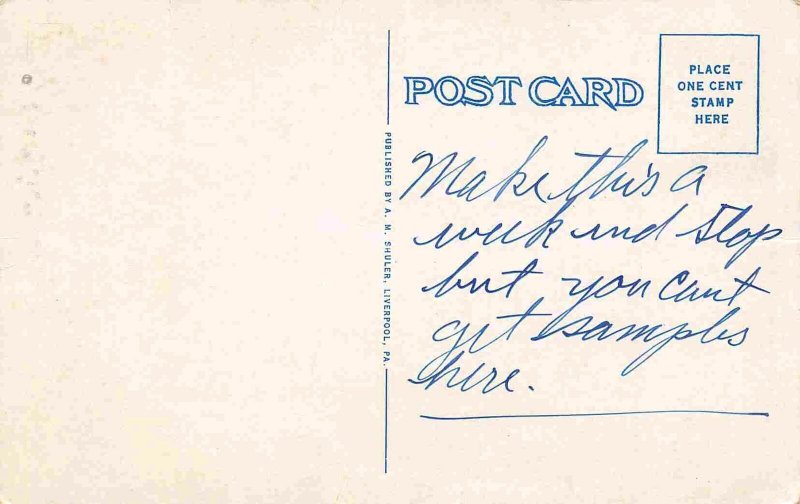 POST CARD
PLACE
ONE CENT
STAMP
HERE
PUBLISHED BY A. M. SHULER, LIVERPOOL, PA.
Make this a
week end stop
but you can't
get samples
here.